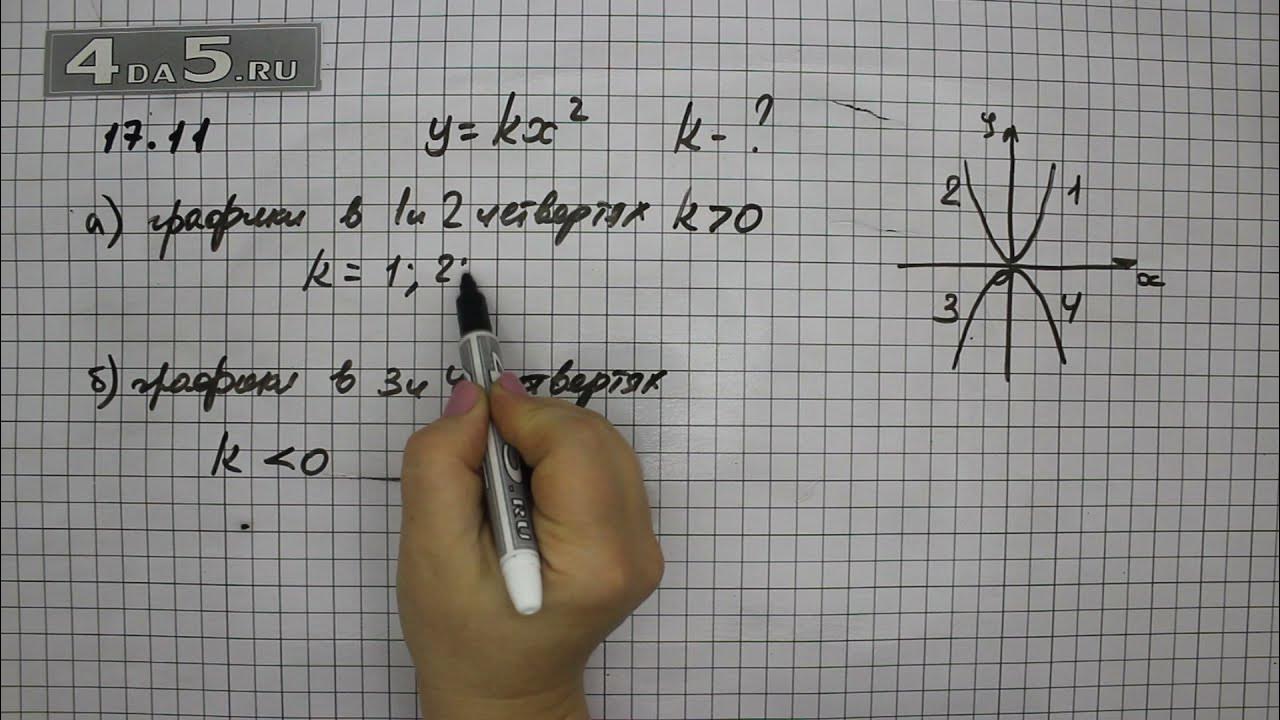 4DA5.RU
17.11 y = kx² k - ?
а) графики в 1 и 2 четвертях k > 0
k = 1; 2;
б) графики в 3 и 4 четвертях
k < 0
y
2 1
x
3 4
.RU